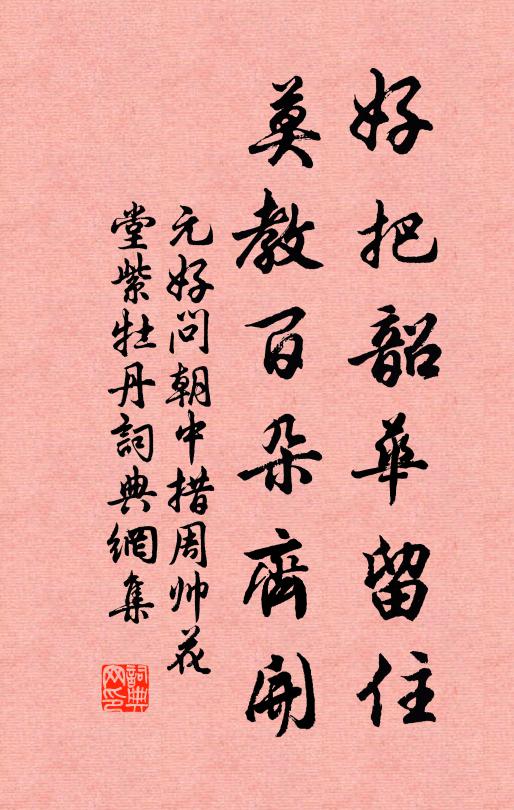 好把韶华留住
莫教百朵齊開
元好问朝中措周帅花
堂紫牡丹詞典網集
詞典
网印